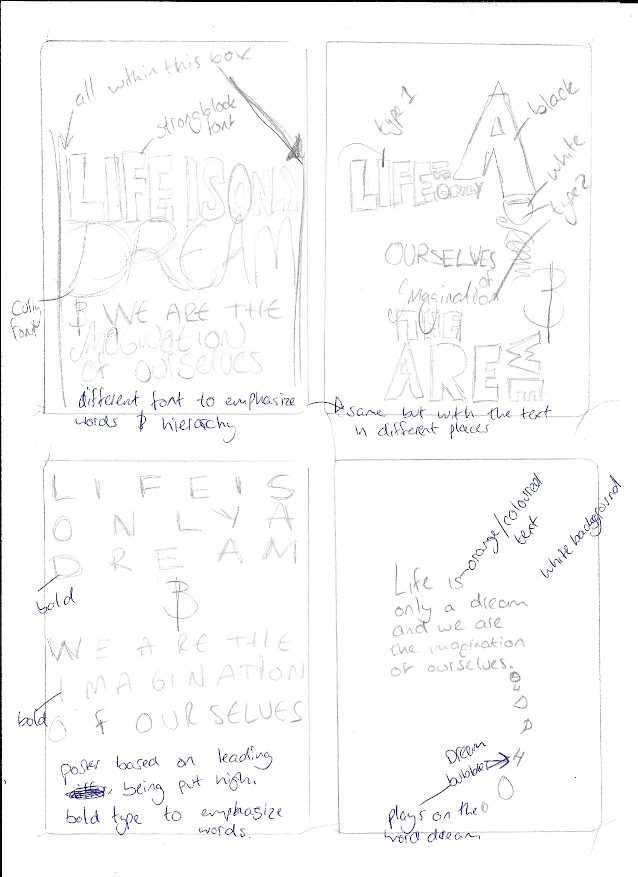 all within this box
strong block
font
LIFE IS ONLY A
DREAM
Curly
Font
& WE ARE THE
IMAGINATION
OF OURSELVES
different font to emphasize
words & hierarchy
type 1
black
white
type 2
LIFE IS ONLY A
Dream
OURSELVES
of
imagination
THE
&
ARE WE
same but with the text
in different places
L I F E I S
O N L Y A
D R E A M
bold
&
W E A R E T H E
I M A G I N A T I O N
bold
O F O U R S E L V E S
poster based on leading
being put high.
bold type to emphasize
words.
orange/coloured
text
white background
Life is
only a dream
and we are
the imagination
of ourselves.
Dream
bubbles
plays on the
word dream